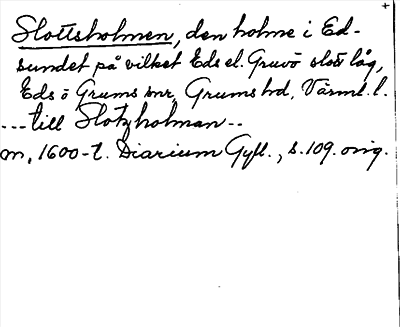 Slottsholmen, den holme i Ed-
sundet på vilket Eds el. Gruvö slott låg,
Eds ö Grums snr, Grums hd, Värml. l.
... till Slotzholman ..
m, 1600-t. Diarium Gyll., s. 109. orig.